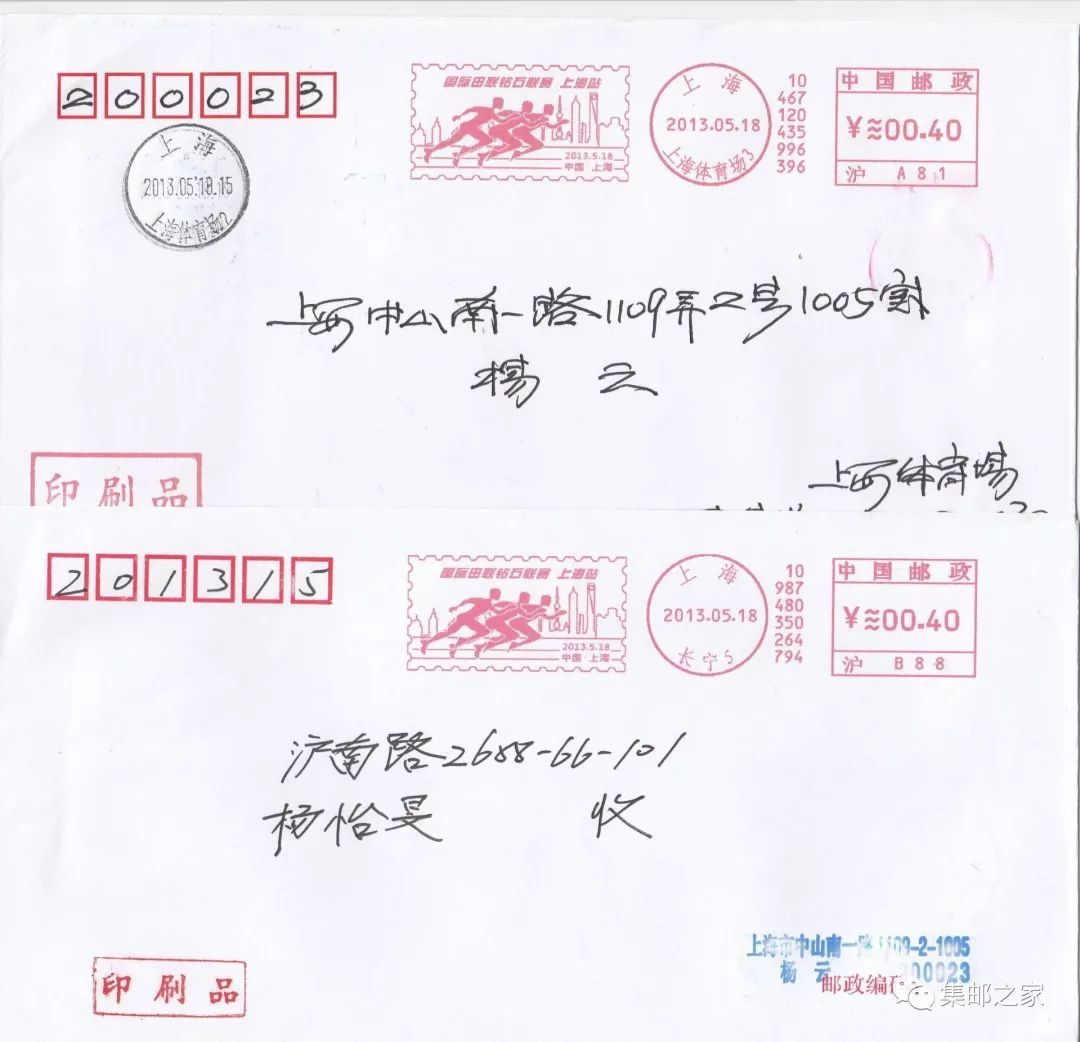 200023
国际田联钻石联赛 上海站
2013.5.18
中国·上海
上海
2013.05.18
上海体育场3
10
467
120
435
996
396
中国邮政
¥≈00.40
沪 A81
上海
2013.05.18.15
上海体育场12
上海中山南一路1109弄2号1005室
杨 云
上海体育场
印刷品
201315
国际田联钻石联赛 上海站
2013.5.18
中国·上海
上海
2013.05.18
长宁5
10
987
480
350
264
794
中国邮政
¥≈00.40
沪 B88
沪南路2688-66-101
杨怡旻 收
上海市中山南一路1109-2-1005
杨 云 200023
邮政编码
印刷品
集邮之家